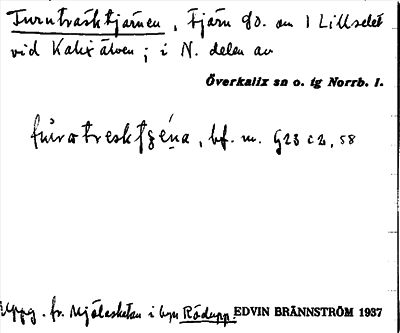 Furuträsktjärnen, tjärn SO. om I Lillselet
vid Kalix älven; i N. delen av
Överkalix sn o. tg Norrb. l.
bf. m. G23 c2, 58
Uppg. fr. Mjölaskatan i byn Rödupp. EDVIN BRÄNNSTRÖM 1937